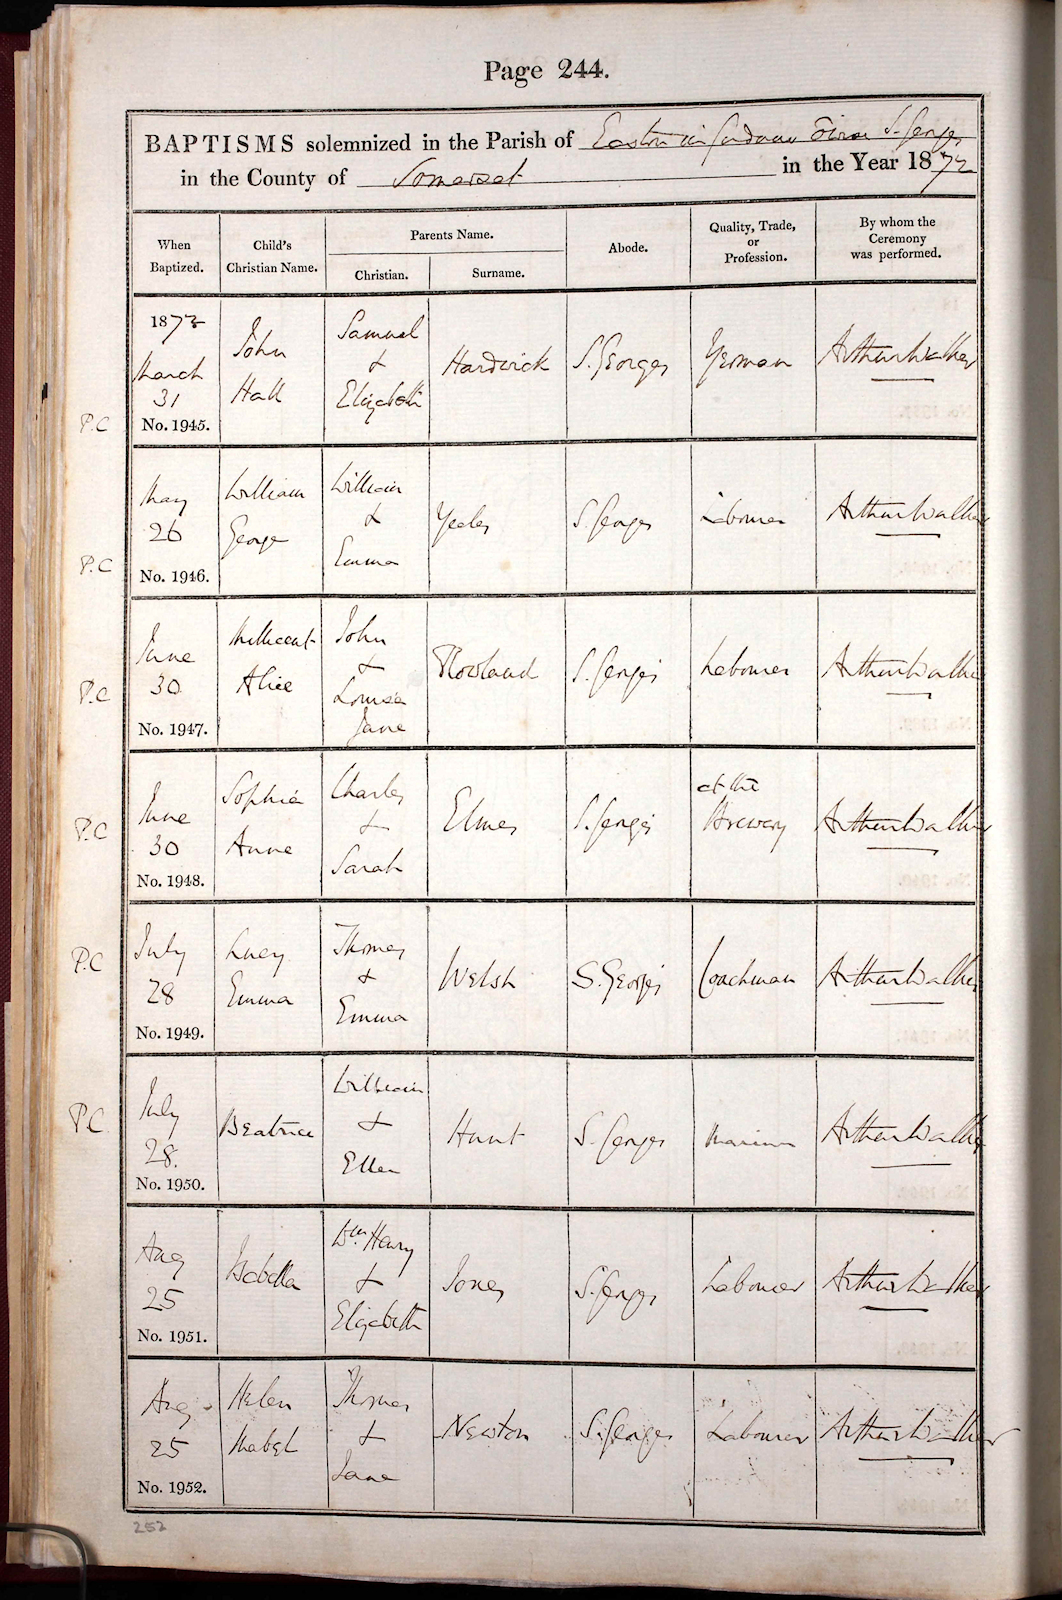 Page 244.
BAPTISMS solemnized in the Parish of Easton in Gordano St. Georges
in the County of Somerset in the Year 1872
When Baptized.
Child's Christian Name.
Parents Name.
Christian.
Surname.
Abode.
Quality, Trade, or Profession.
By whom the Ceremony was performed.
1872 March 31 No. 1945. John Hall Samuel & Elizabeth Hardwick S. Georges Yeoman Arthur Walker
P.C
May 26 No. 1946. William George William & Emma Yeeles S. Georges Labourer Arthur Walker
P.C
June 30 No. 1947. Millicent Alice John & Louisa Jane Rowland S. Georges Labourer Arthur Walker
P.C
June 30 No. 1948. Sophia Anne Charles & Sarah Elmes S. Georges at the Brewery Arthur Walker
P.C
July 28 No. 1949. Lucy Emma Thomas & Emma Welsh S. Georges Coachman Arthur Walker
P.C
July 28. No. 1950. Beatrice William & Ellen Hunt S. Georges Mariner Arthur Walker
P.C
Aug 25 No. 1951. Isabella Wm. Henry & Elizabeth Jones S. Georges Labourer Arthur Walker
Aug 25 No. 1952. Helen Mabel Thomas & Jane Newton S. Georges Labourer Arthur Walker
252